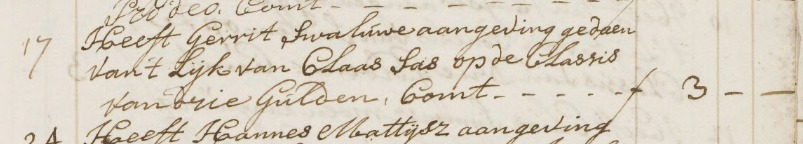 Pro deo. Comt - - - - - -
17 Heeft Gerrit Swaluwe aangeving gedaen
van't Lijk van Claas Sas op de Classis
van drie Gulden, Comt - - - - - f 3 - -
24 Heeft Hannes Mattijsz aangeving